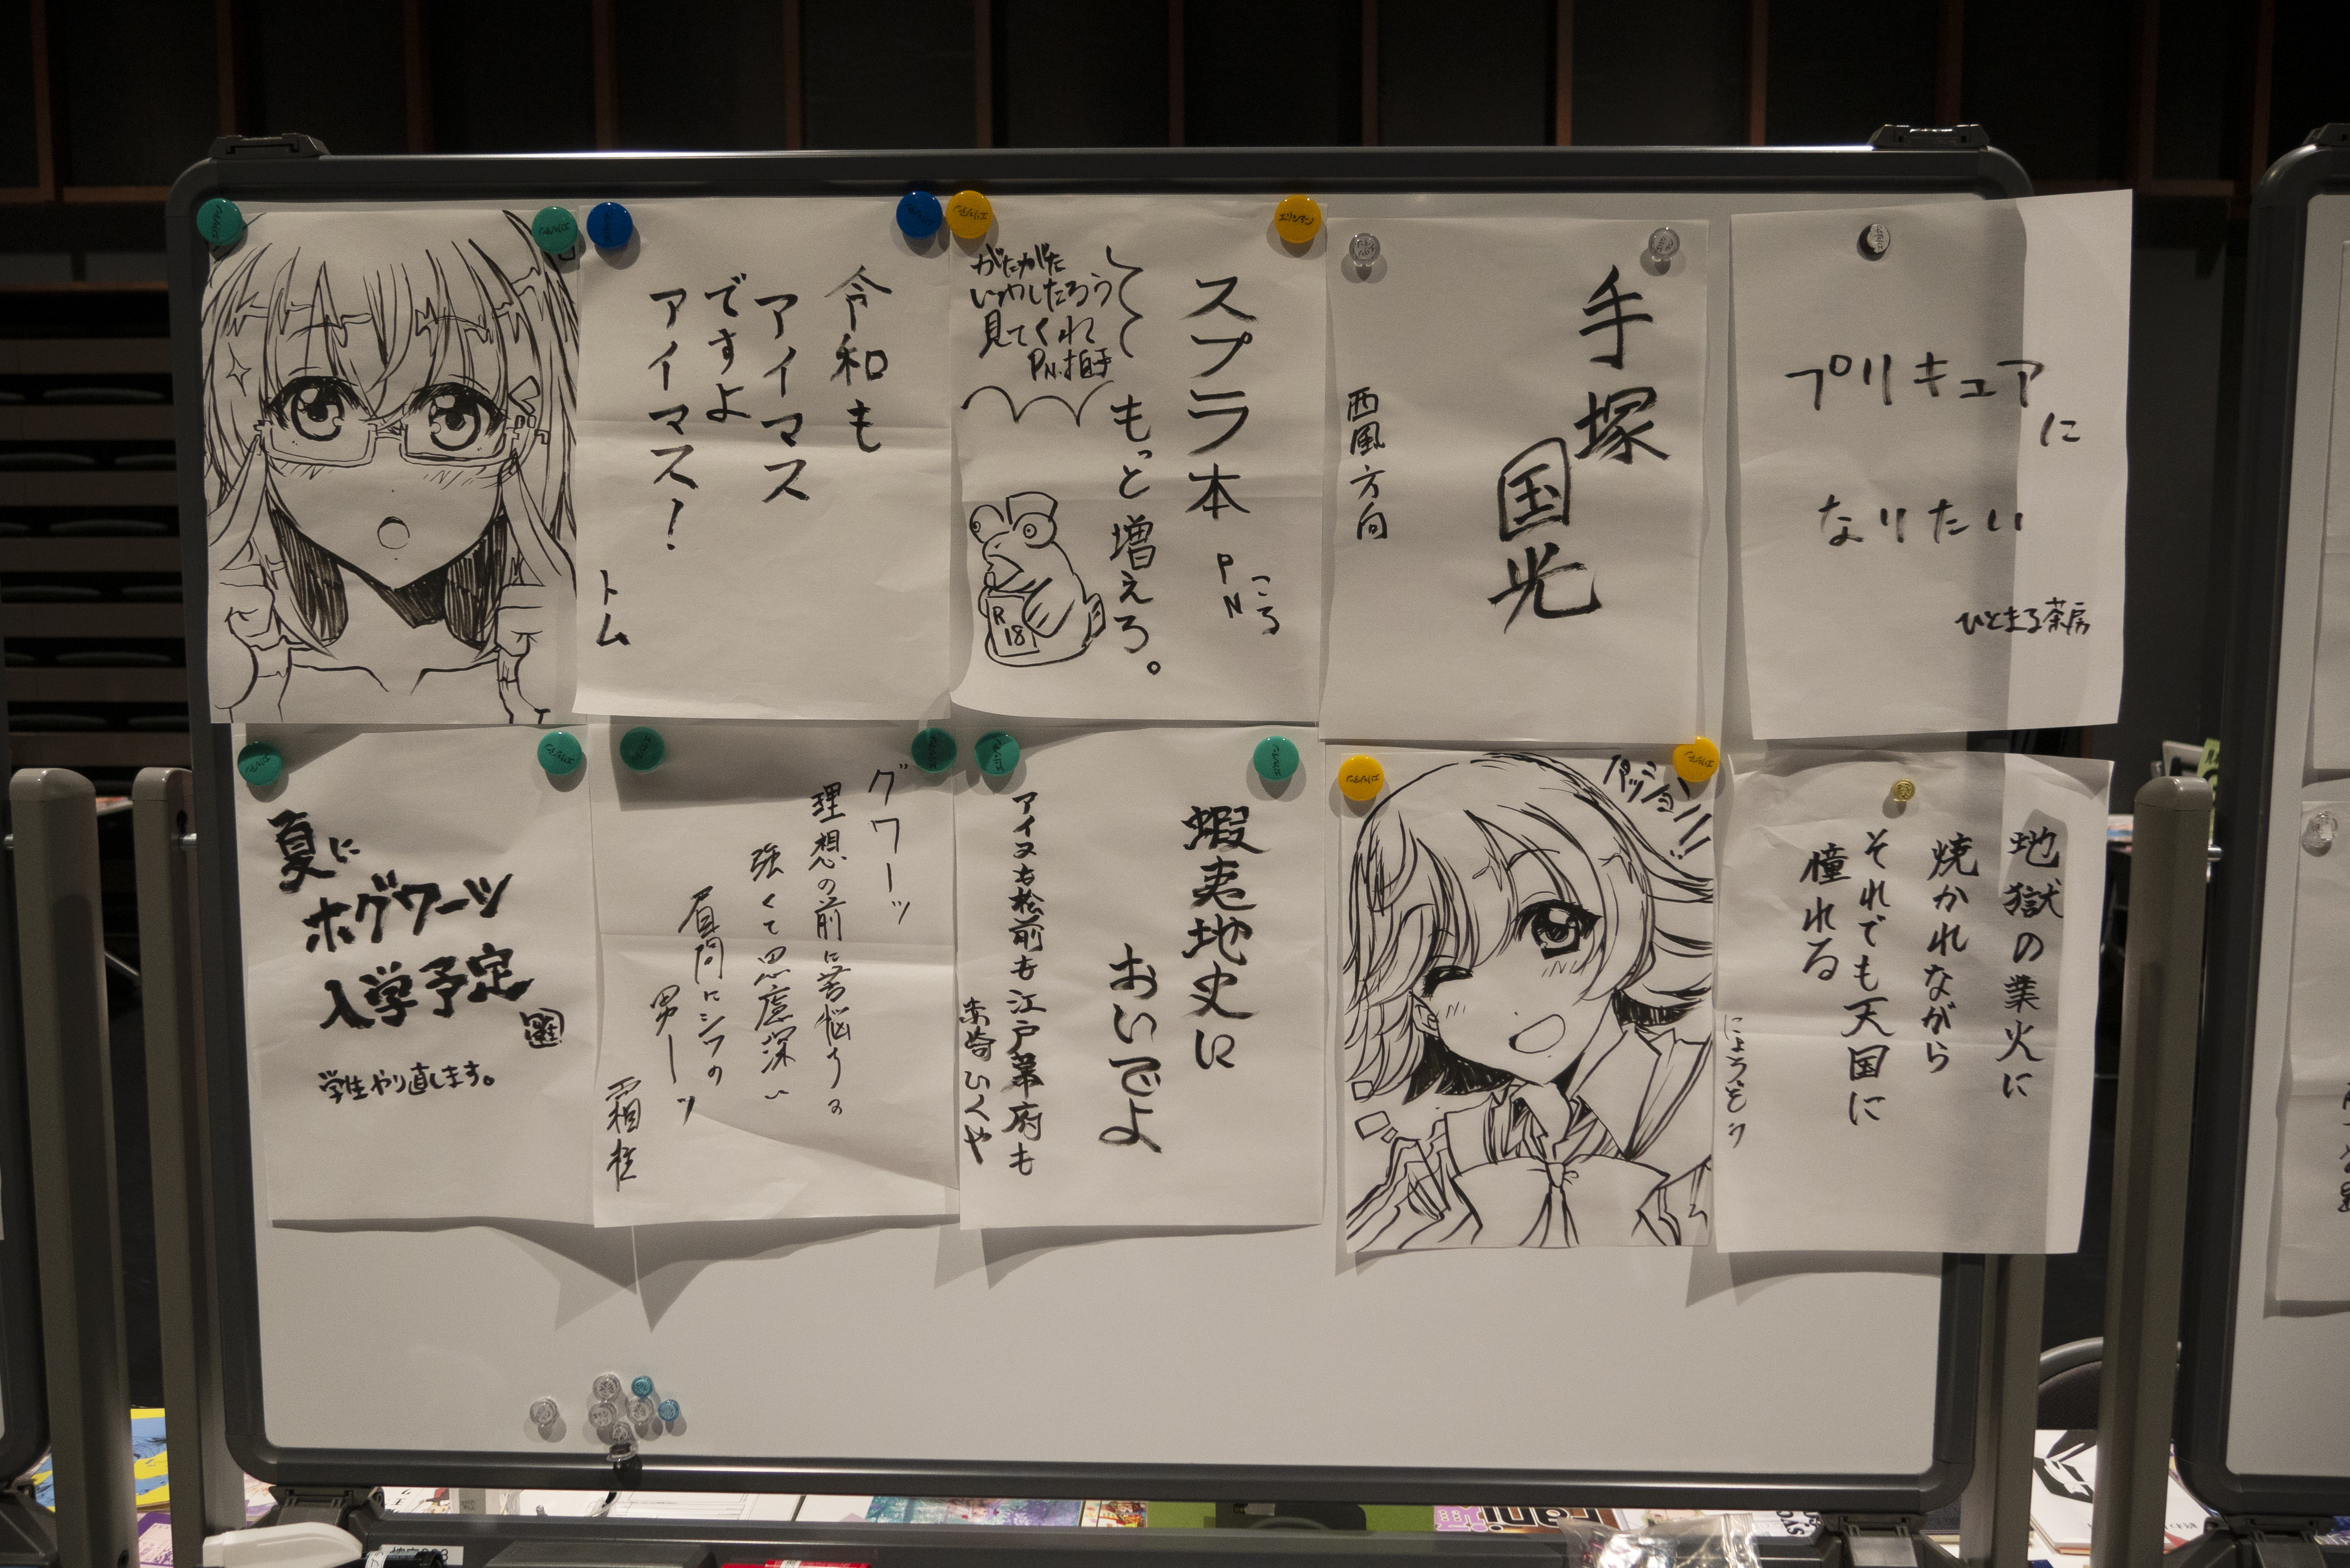 令和も
アイマス
ですよ
アイマス!
トム
スプラ本
もっと増えろ。
PN ころ
がたがた
いわしたろう
見てくれ
PN.拍手
R
18
手塚
国光
西風方向
プリキュアに
なりたい
ひとまる茶房
夏に
ホグワーツ
入学予定
学生やり直します。
グワーッ
理想の前に苦悩する
強くて思慮深い
眉間にシワの
男ーッ
霜柱
蝦夷地史に
おいでよ
アイヌも松前も江戸幕府も
赤崎いくや
パッション!!
地獄の業火に
焼かれながら
それでも天国に
憧れる
にょうぞう